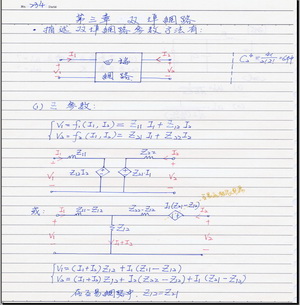 第三章 双埠網路
• 描述双埠網路参数方法有:
I₁
I₂
V₁
V₂
網路
(1) Z 参数:
V₁=f₁(I₁,I₂)= Z₁₁ I₁+Z₁₂ I₂
V₂=f₂(I₁,I₂)= Z₂₁ I₁+Z₂₂ I₂
I₁ Z₁₁ Z₂₂ I₂
V₁ Z₁₂I₂ Z₂₁I₁ V₂
或:
I₁ Z₁₁-Z₁₂ Z₂₂-Z₁₂ I₁(Z₂₁-Z₁₂) I₂
V₁ Z₁₂ V₂
I₁+I₂
V₁=(I₁+I₂)Z₁₂ + I₁(Z₁₁-Z₁₂)
V₂=(I₁+I₂)Z₁₂+I₂(Z₂₂-Z₁₂)+I₁(Z₂₁-Z₁₂)
網路中, Z₁₂=Z₂₁